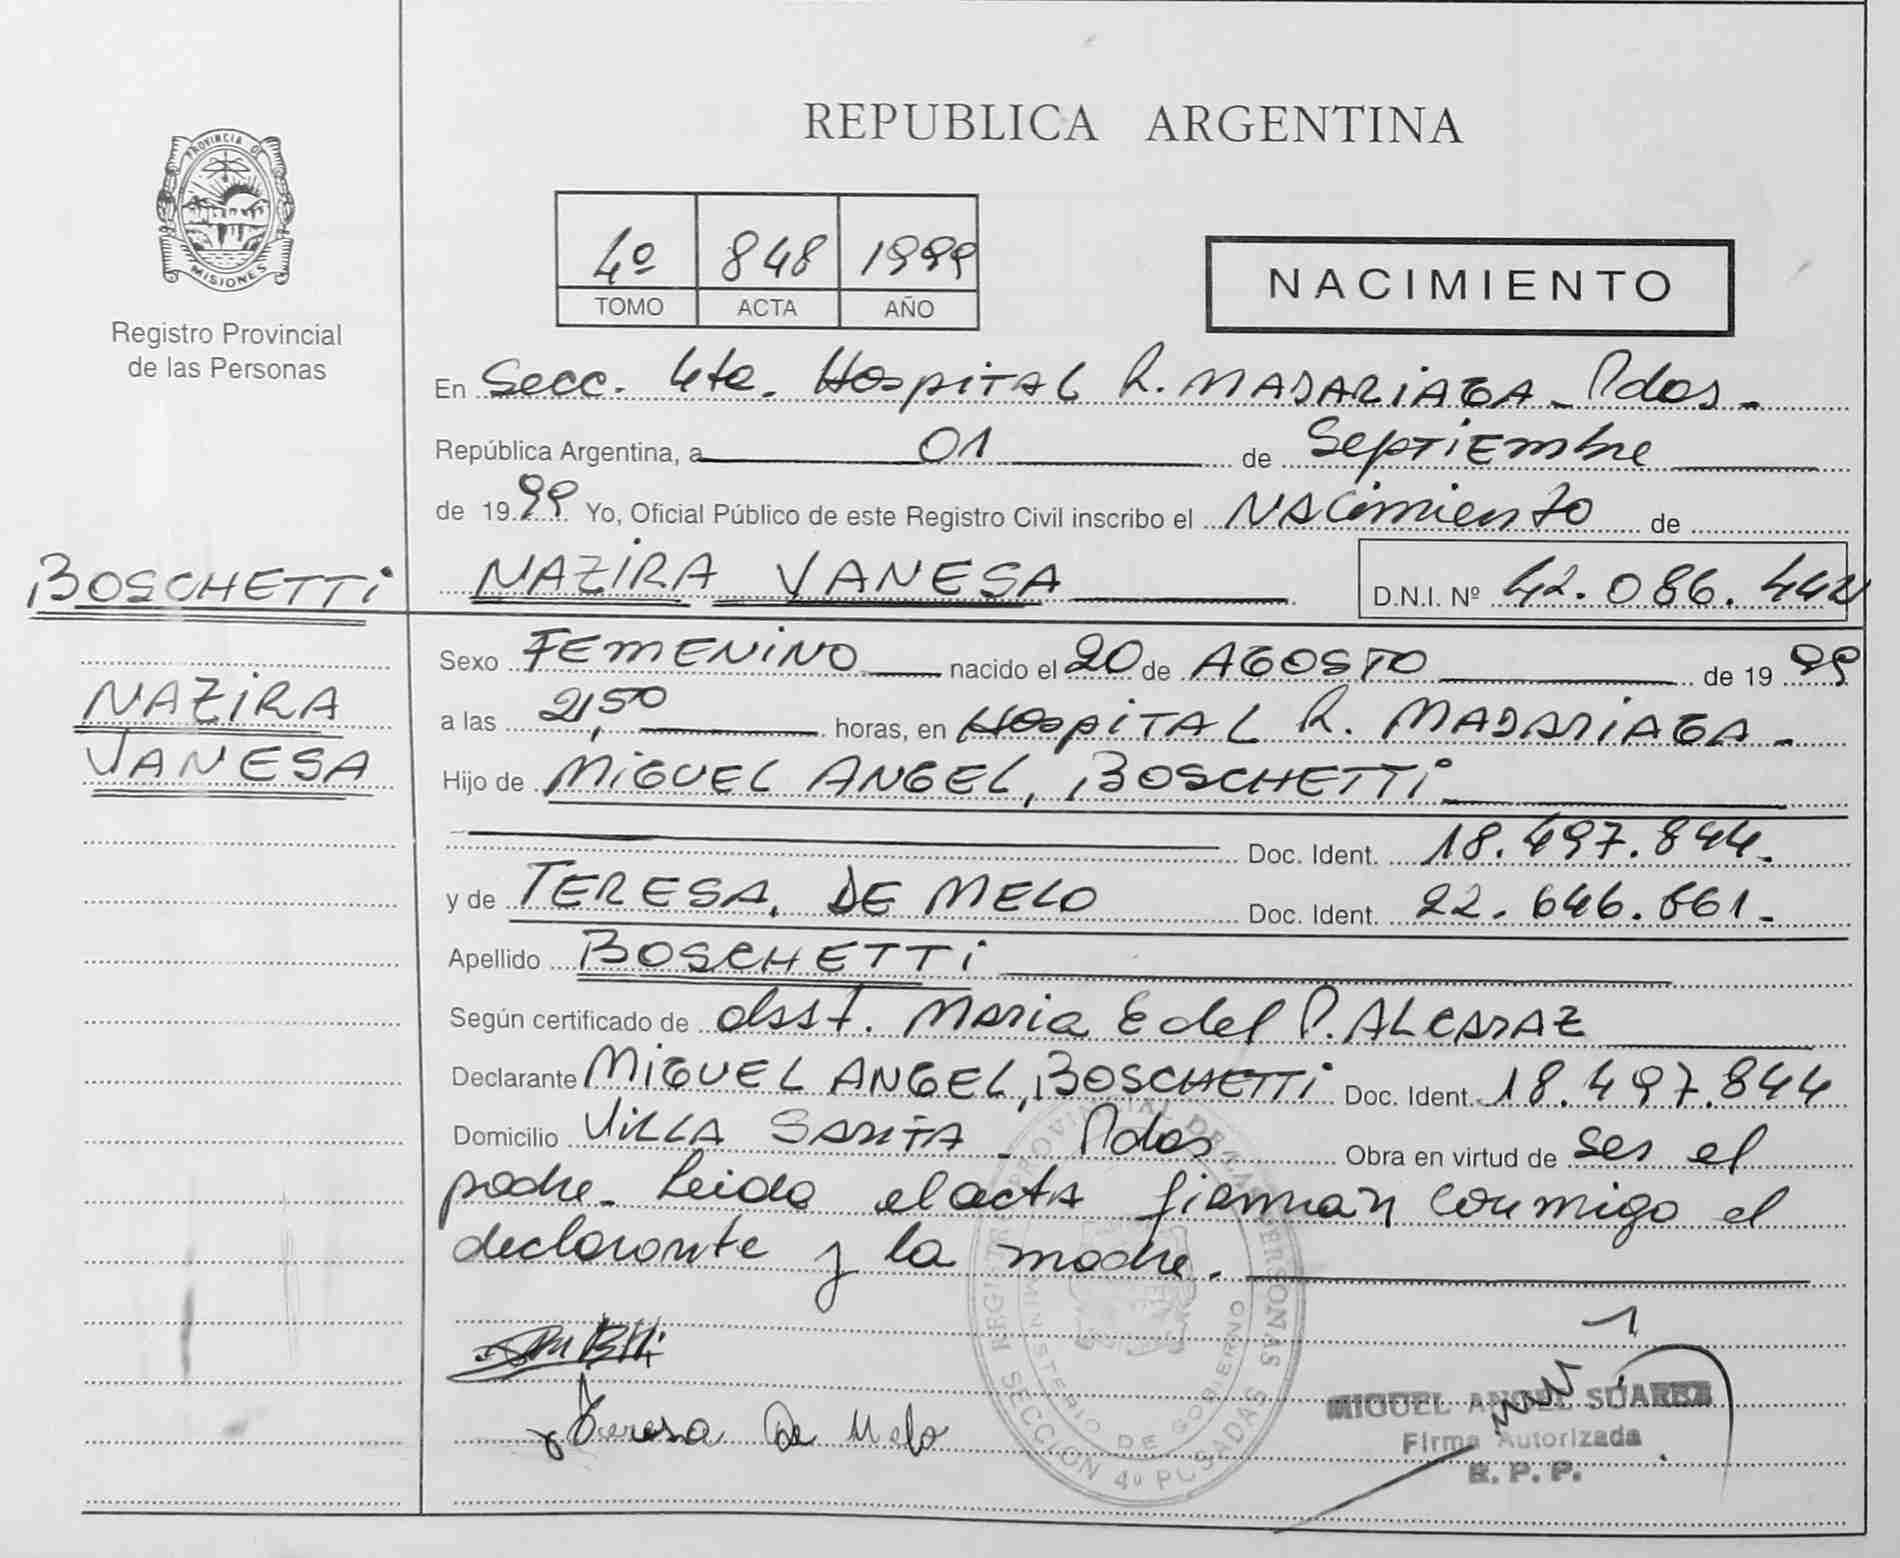 REPUBLICA ARGENTINA
PROVINCIA DE
MISIONES
Registro Provincial
de las Personas
4º 848 1999
TOMO ACTA AÑO
NACIMIENTO
En Secc. 4ta. Hospital R. MADARIAGA - Pdas -
República Argentina, a 01 de Septiembre
de 1999 Yo, Oficial Público de este Registro Civil inscribo el Nacimiento de
BOSCHETTI
NAZIRA VANESA
D.N.I. Nº 42.086.442
NAZIRA
VANESA
Sexo FEMENINO nacido el 20 de AGOSTO de 1999
a las 21,50 horas, en Hospital R. MADARIAGA -
Hijo de MIGUEL ANGEL, BOSCHETTI
Doc. Ident. 18.497.844.
y de TERESA, DE MELO Doc. Ident. 22.646.661.-
Apellido BOSCHETTI
Según certificado de obst. Maria E del P. ALCARAZ
Declarante MIGUEL ANGEL, BOSCHETTI Doc. Ident. 18.497.844
Domicilio VILLA SARITA - Pdas Obra en virtud de ser el
padre - Leida el acta firman conmigo el
declarante y la madre.
Teresa De Melo
REGISTRO PROVINCIAL DE LAS PERSONAS
MINISTERIO DE GOBIERNO
SECCION 4º POSADAS
MIGUEL ANGEL SUAREZ
Firma Autorizada
R. P. P.